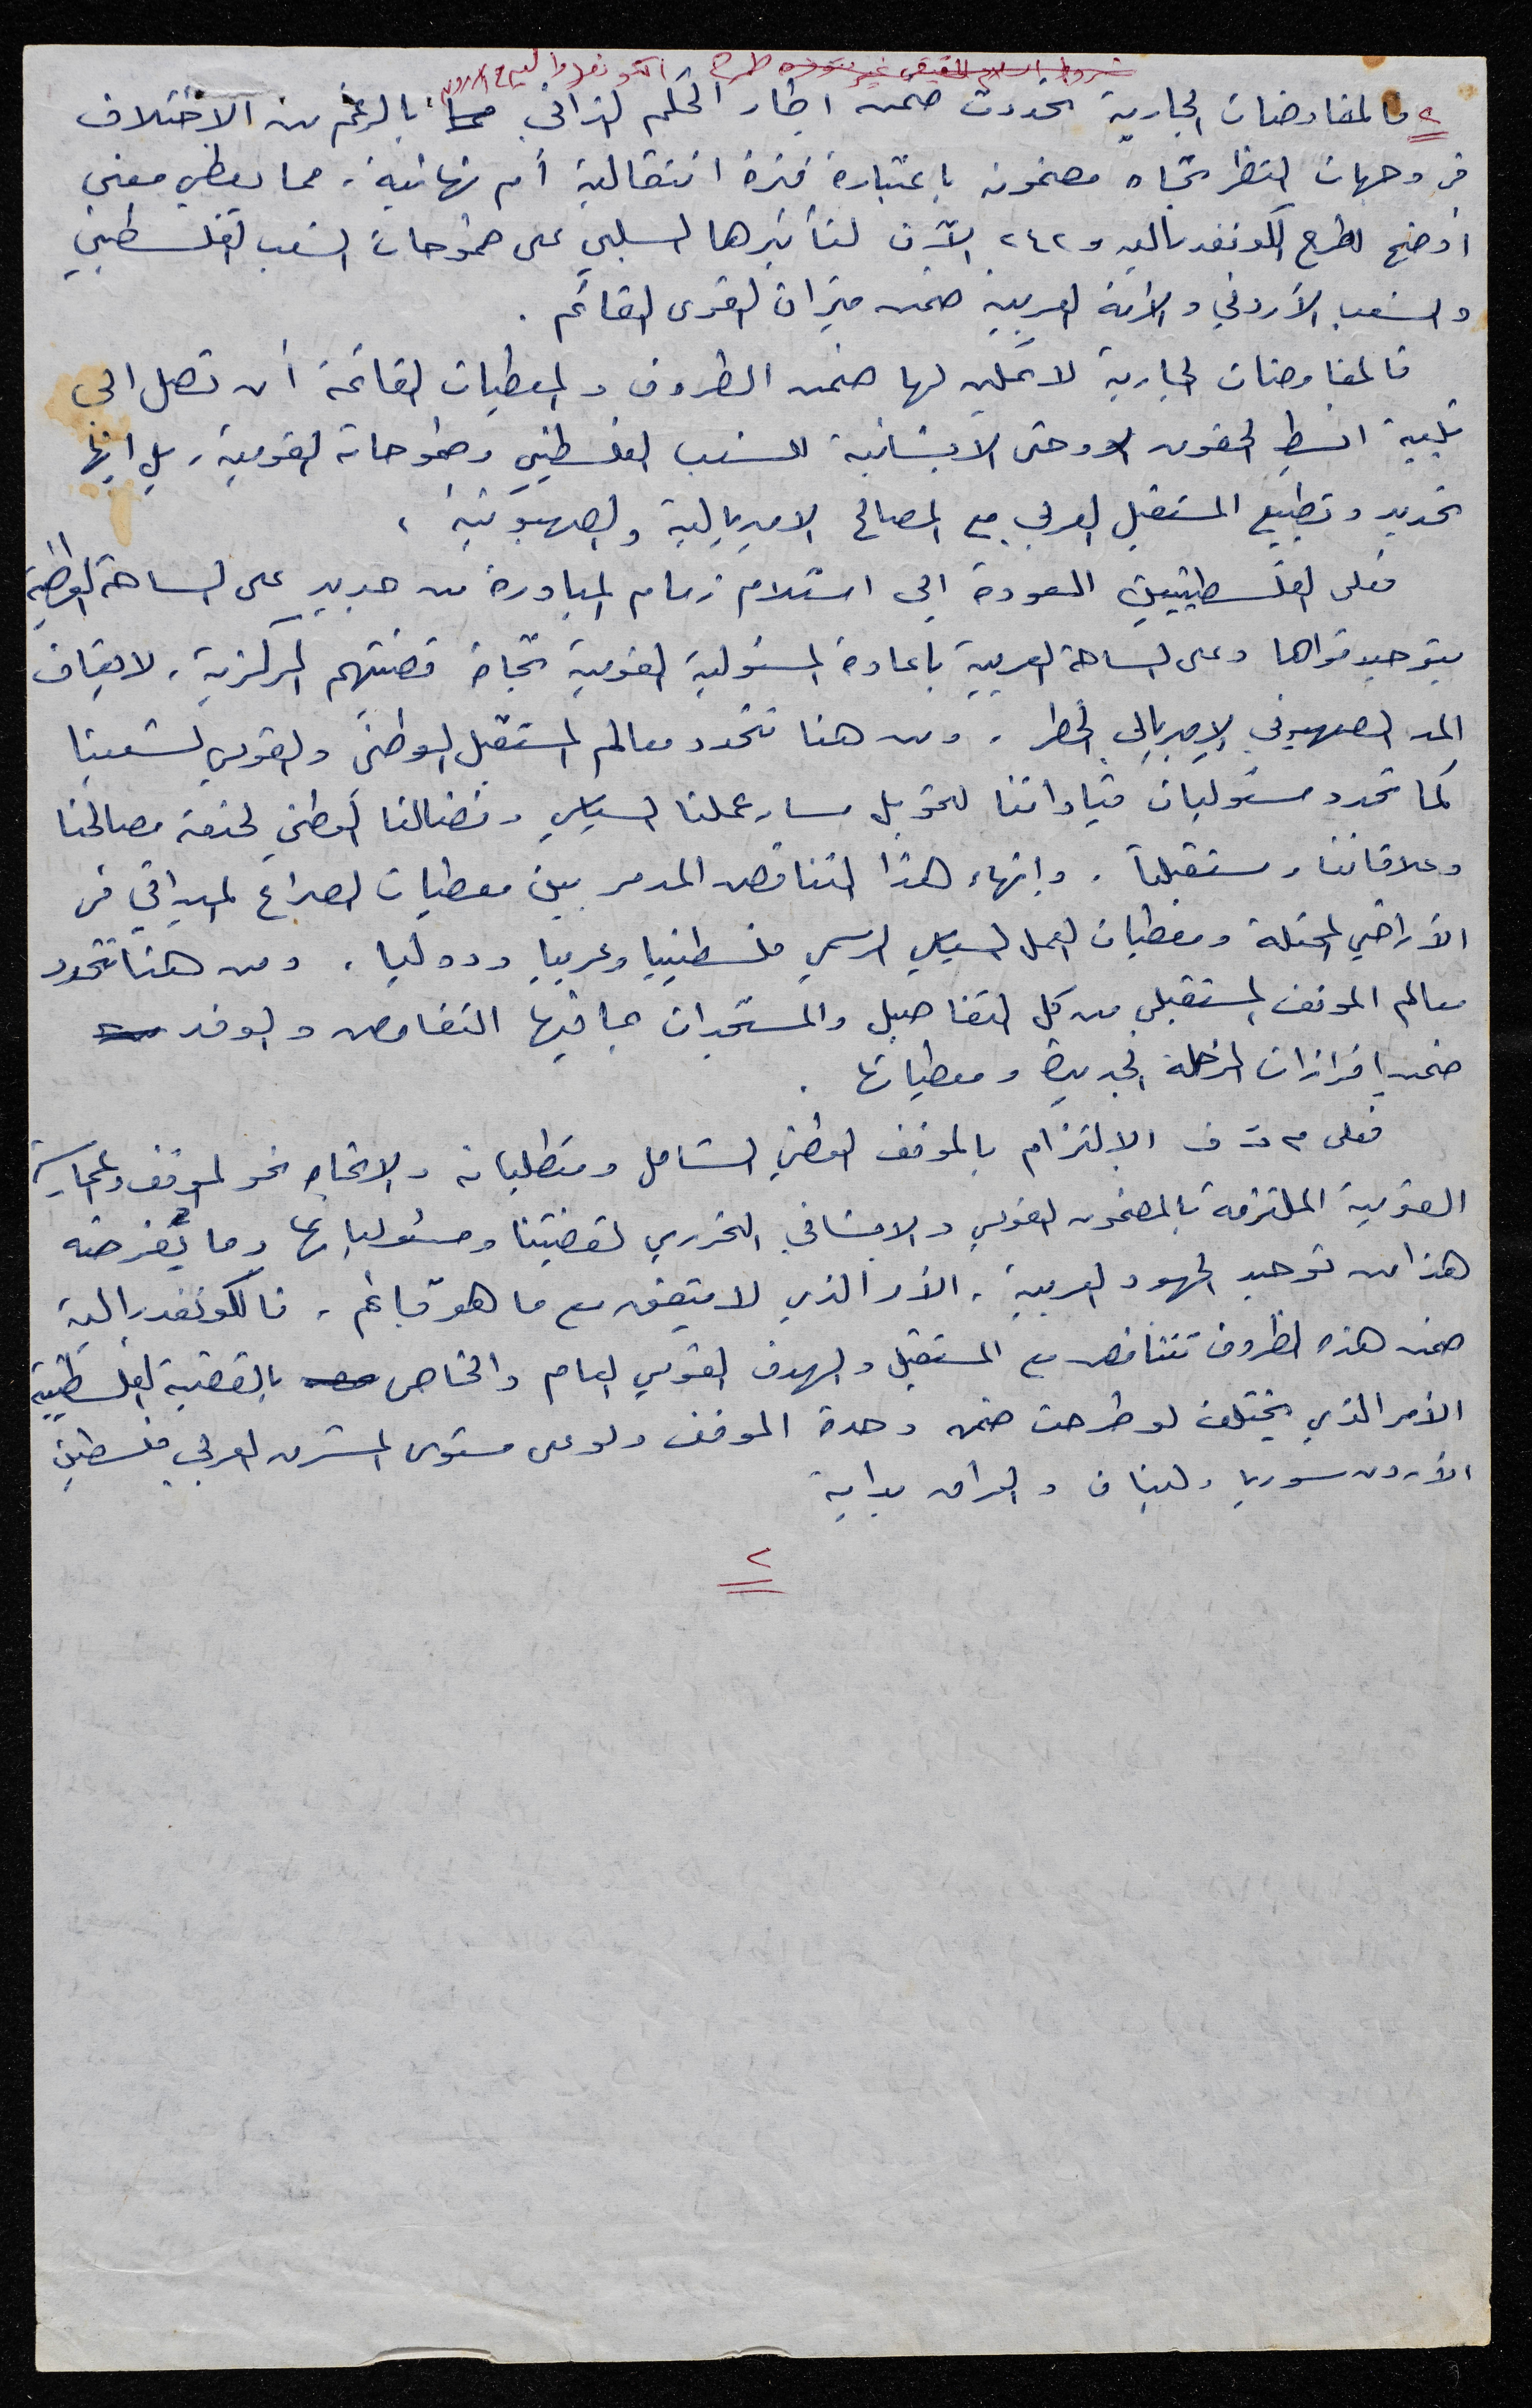 شروط السلام الحقيقي غير متوفره طرح الكونفدراليه مع الاردن
٢ فالمفاوضات الجارية تحددت ضمن اطار الحكم الذاتي بالرغم من الاختلاف
في وجهات النظر تجاه مضمونه باعتباره فترة انتقالية أم نهائية، مما يعطي معنى
أوضح لطرح الكونفدراليه و ٢٤٢ الآن لتأثيرها السلبي على طموحات الشعب الفلسطيني
والشعب الأردني والأمة العربية ضمن ميزان القوى القائم.
فالمفاوضات الجارية لا يمكن لها ضمن الظروف والمعطيات القائمة أن تصل الى
تلبية ابسط الحقوق وحتى الانسانية للشعب الفلسطيني وطموحاته القومية، بل انها
تحديد وتطبيع المستقبل العربي مع المصالح الامبريالية والصهيونية،
فعلى الفلسطينيين العودة الى استلام زمام المبادرة من جديد على الساحة الوطنية
بتوحيد قواها وعلى الساحة العربية باعادة المسئولية القومية تجاه قضيتهم المركزية، لايقاف
المد الصهيوني الامبريالي الخطر، ومن هنا تتحدد معالم المستقبل الوطني والقومي لشعبنا
كما تحدد مسئوليات قياداتنا لتحويل مسار عملنا السياسي ونضالنا الوطني لخدمة مصالحنا
وعلاقاتنا ومستقبلنا، وانهاء هذا التناقض المدمر بين معطيات الصراع الميداني في
الأراضي المحتلة ومعطيات العمل السياسي الرسمي فلسطينيا وعربيا ودوليا، ومن هنا تتحدد
معالم الموقف المستقبلي من كل التفاصيل والمستجدات بما فيها التفاوض والوفد
ضمن افرازات المرحلة الجديدة ومعطياتها.
فعلى م ت ف الالتزام بالموقف الوطني الشامل ومتطلباته والاتجاه نحو الموقف والممارسة
القومية الملتزمة بالمضمون القومي والانساني التحرري لقضيتنا ومسئولياتها وما يفرضه
هذا من توحيد الجهود العربية، الأمر الذي لا يتفق مع ما هو قائم، فالكونفدرالية
ضمن هذه الظروف تتناقض مع المستقبل والهدف القومي العام والخاص بالقضية الفلسطينية
الأمر الذي يختلف لو طرحت ضمن وحدة الموقف ولو على مستوى المشرق العربي فلسطين
الأردن سوريا ولبنان والعراق بداية
٢